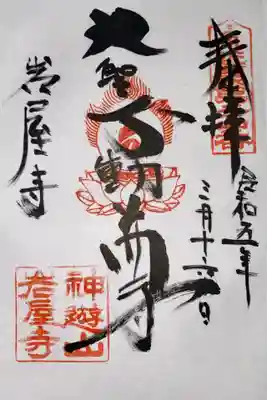 奉拝
令和五年
月十
日
大聖
不動尊
岩屋寺
神遊山
岩屋寺